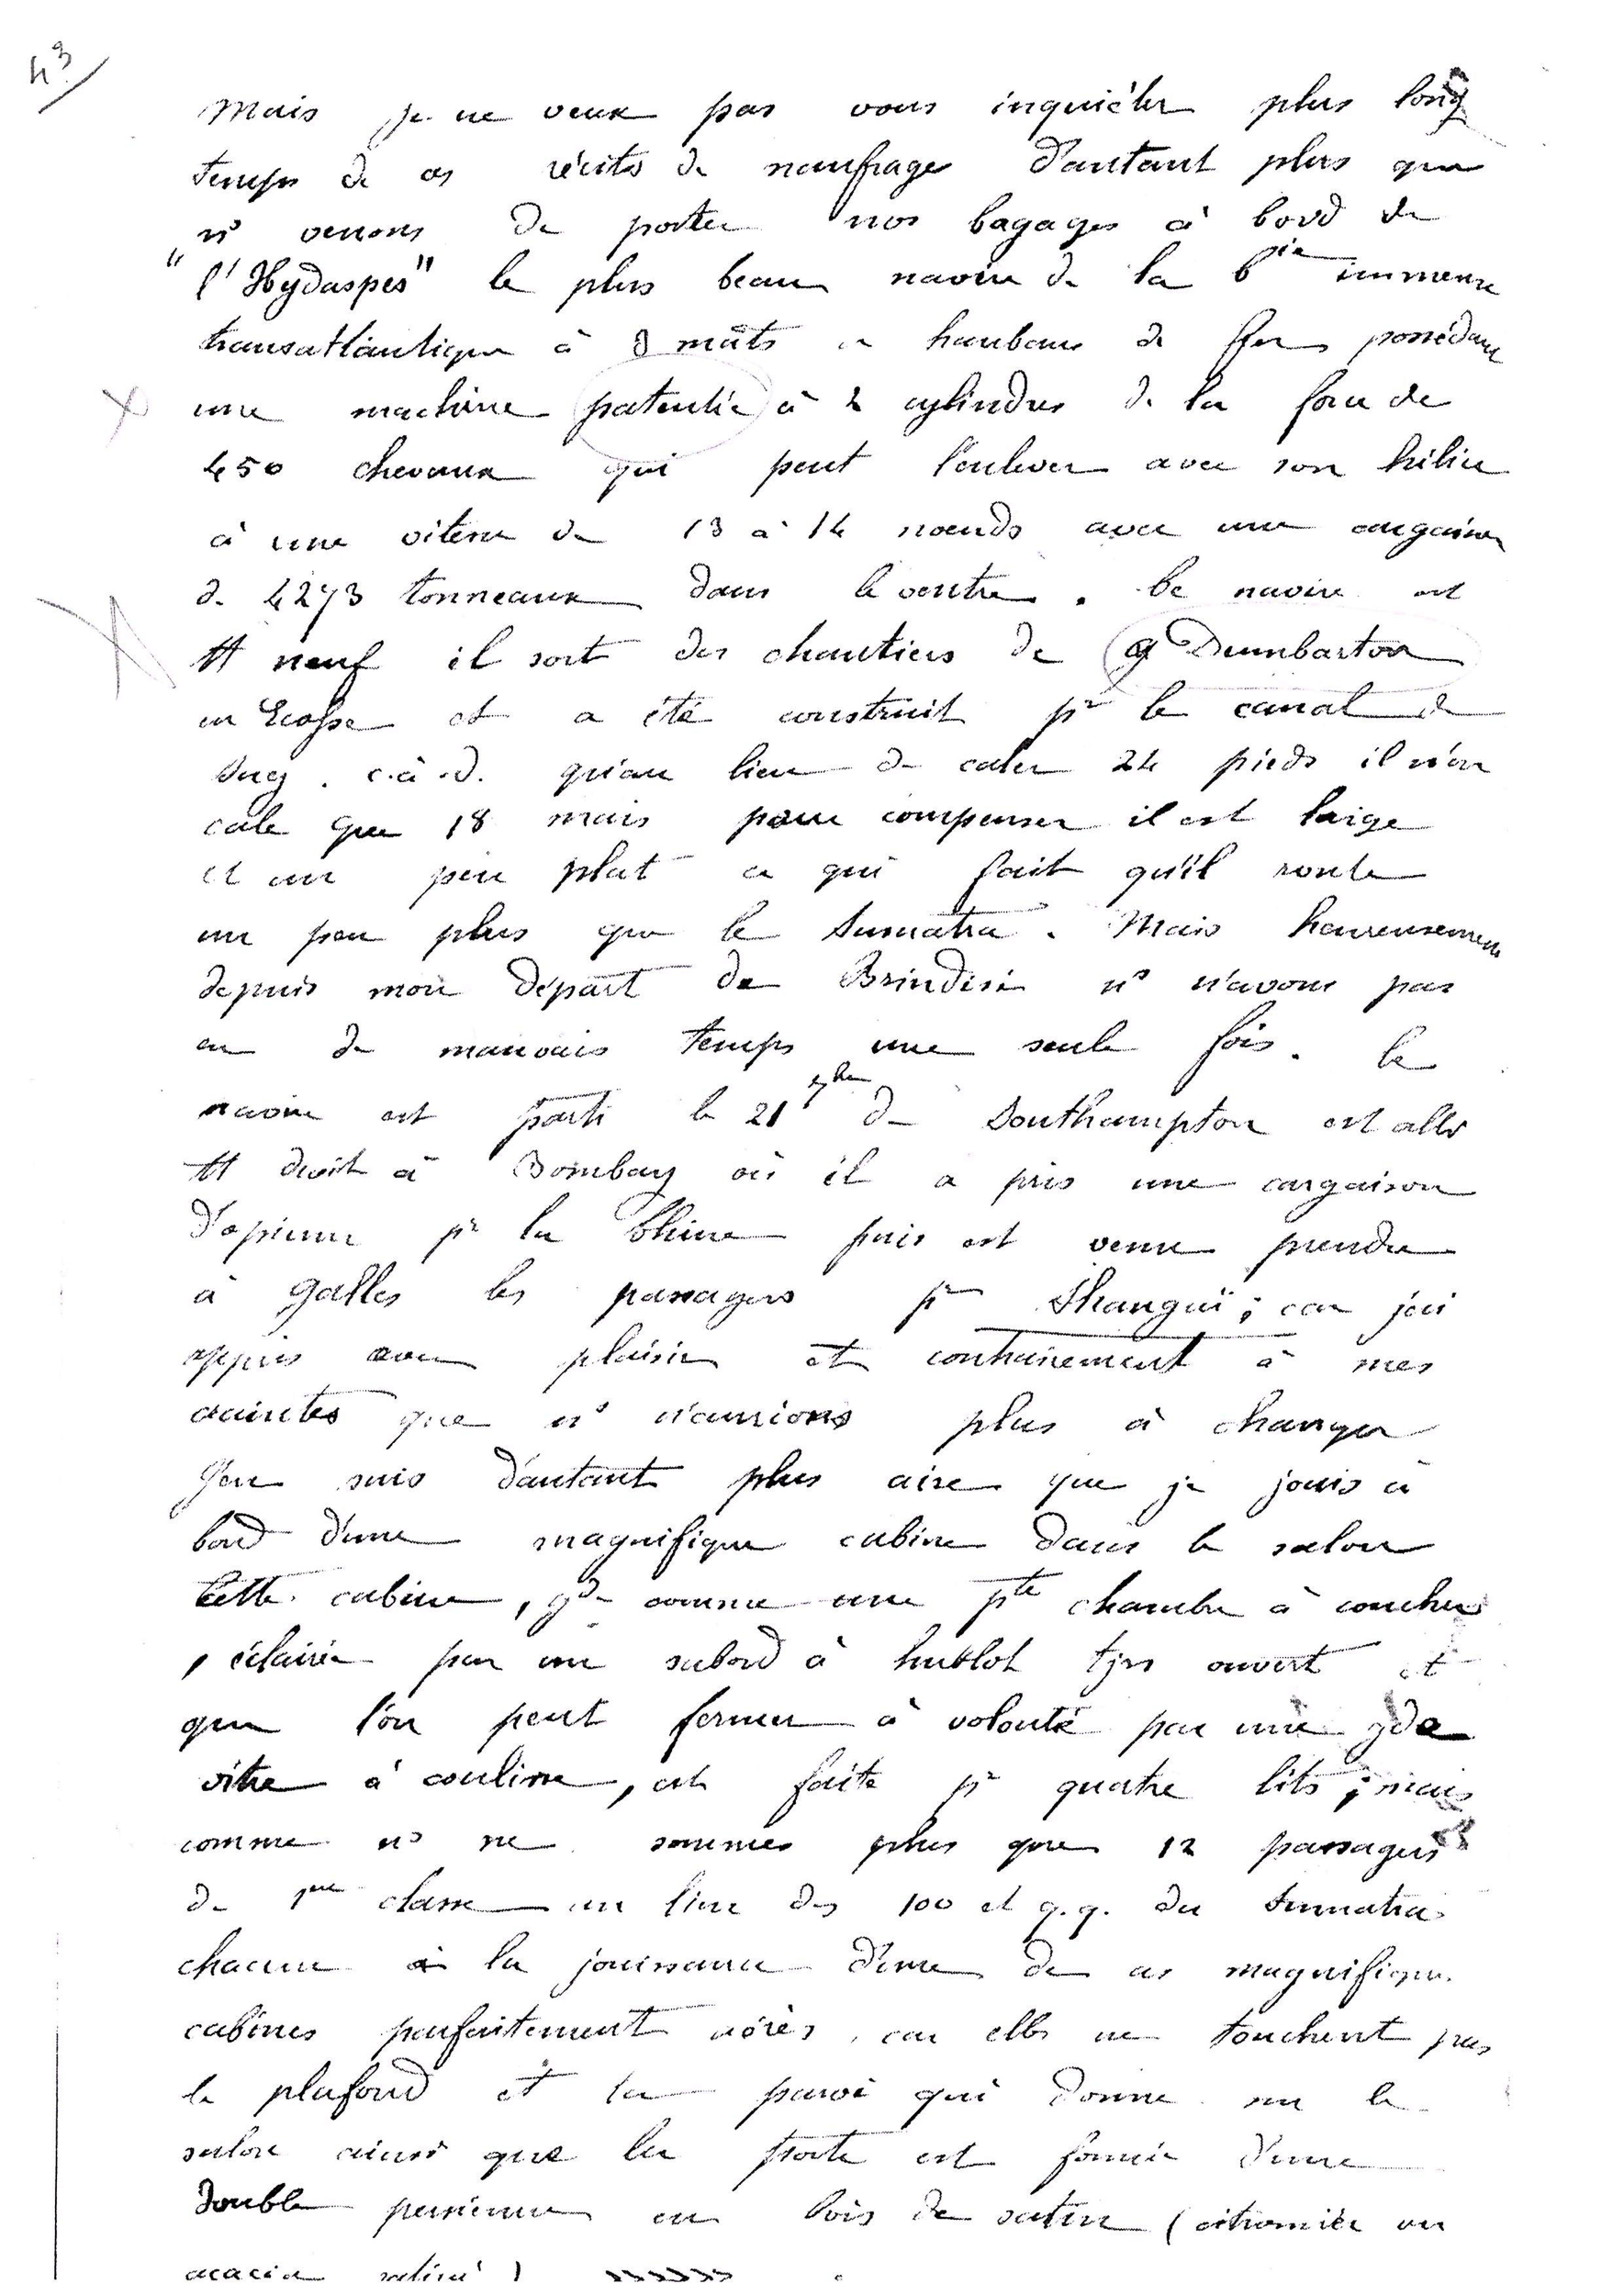 43
Mais je ne veux pas vous inquiéter plus long
temps de ces récits de naufrages d'autant plus que
ns venons de porter nos bagages à bord de
"l'Hydaspes" le plus beau navire de la Cie immense
transatlantique à 3 mâts à haubans de fer possédant
une machine patentée à 2 cylindres de la force de
450 chevaux qui peut l'enlever avec son hélice
à une vitesse de 13 à 14 noeuds avec une cargaison
de 4273 tonneaux dans le ventre. Ce navire est
tt neuf il sort des chantiers de Dumbarton
en Ecosse et a été construit pr le canal de
Suez. c.à.d. qu'au lieu de caler 24 pieds il n'en
cale que 18 mais pour compenser il est large
et un peu plat ce qui fait qu'il roule
un peu plus que le Sumatra. Mais heureusement
depuis mon départ de Brindisi ns n'avons pas
eu de mauvais temps une seule fois. Le
navire est parti le 21 7bre de Southampton est allé
tt droit à Bombay où il a pris une cargaison
d'opium pr la Chine puis est venu prendre
à Galles les passagers pr Shangaï; car j'ai
appris avec plaisir et contrairement à mes
craintes que ns n'aurions plus à changer
J'en suis d'autant plus aise que je jouis à
bord d'une magnifique cabine dans le salon
Cette cabine, gde comme une pte chambre à coucher
, éclairée par un sabord à hublot tjrs ouvert et
que l'on peut fermer à volonté par une gde
vitre à coulisse, est faite pr quatre lits; mais
comme ns ne sommes plus que 12 passagers
de 1ère classe au lieu des 100 et q.q. du Sumatra
chacun a la jouissance d'une de ces magnifiques
cabines parfaitement aérées, car elles ne touchent pas
le plafond et la paroi qui donne sur le
salon ainsi que la porte est formée d'une
double persienne en bois de satin (citronnier ou
acacia satiné)